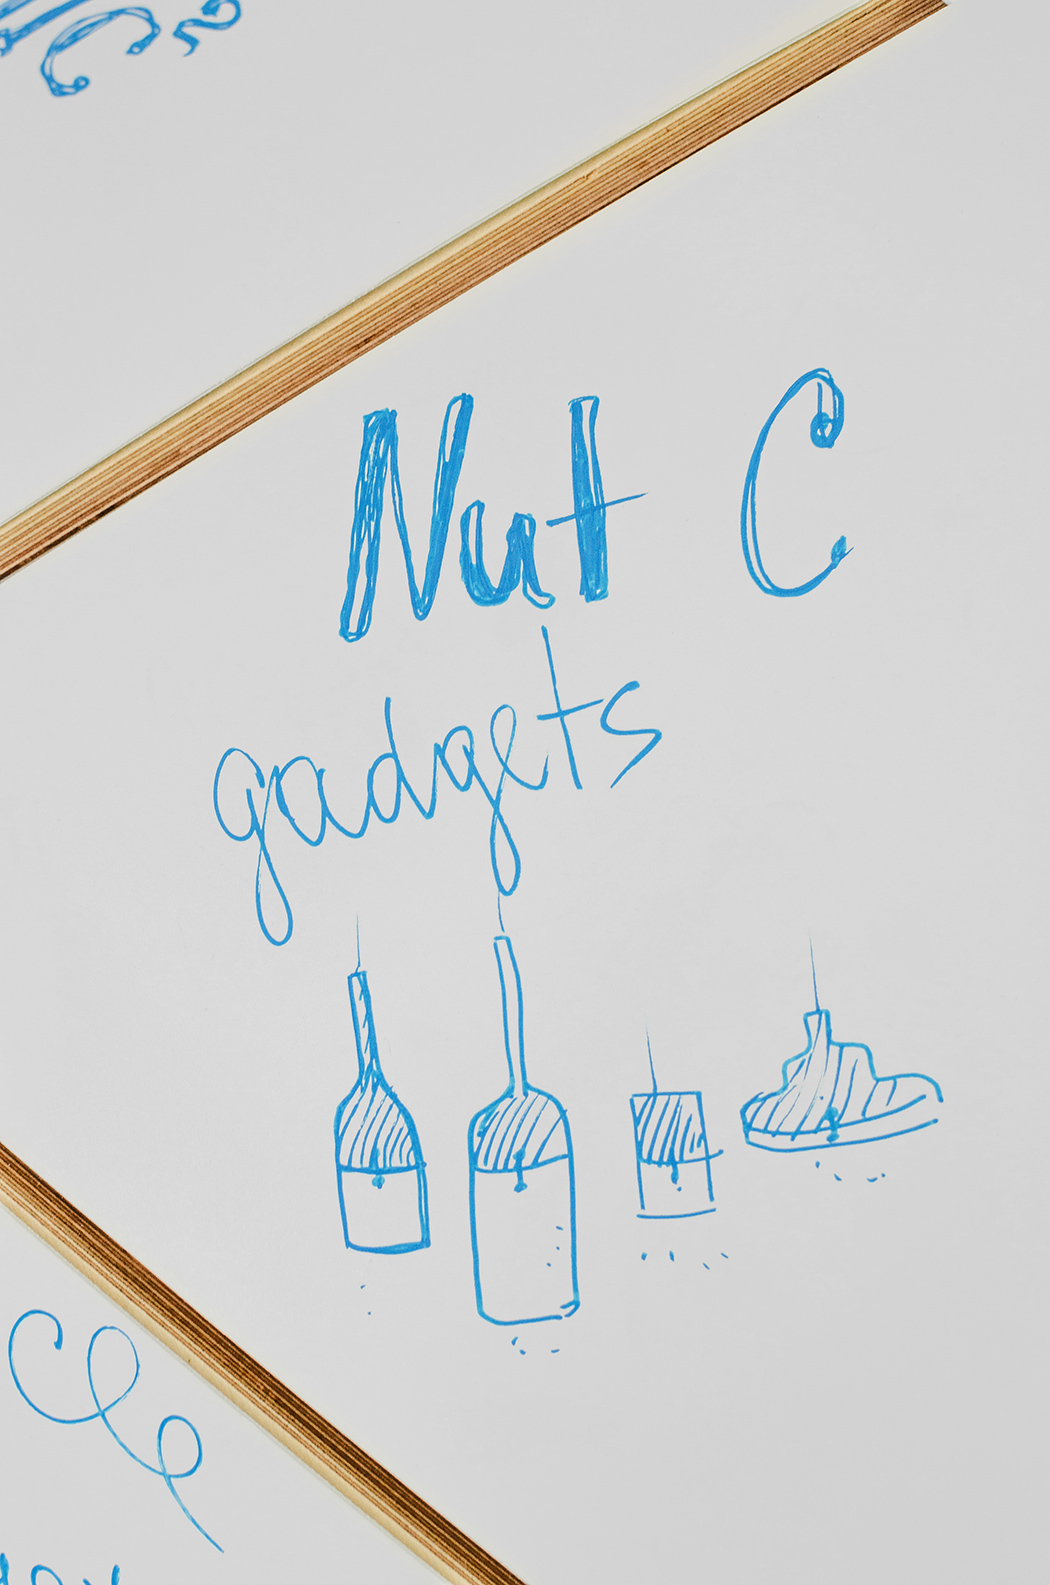 Nut C
gadgets